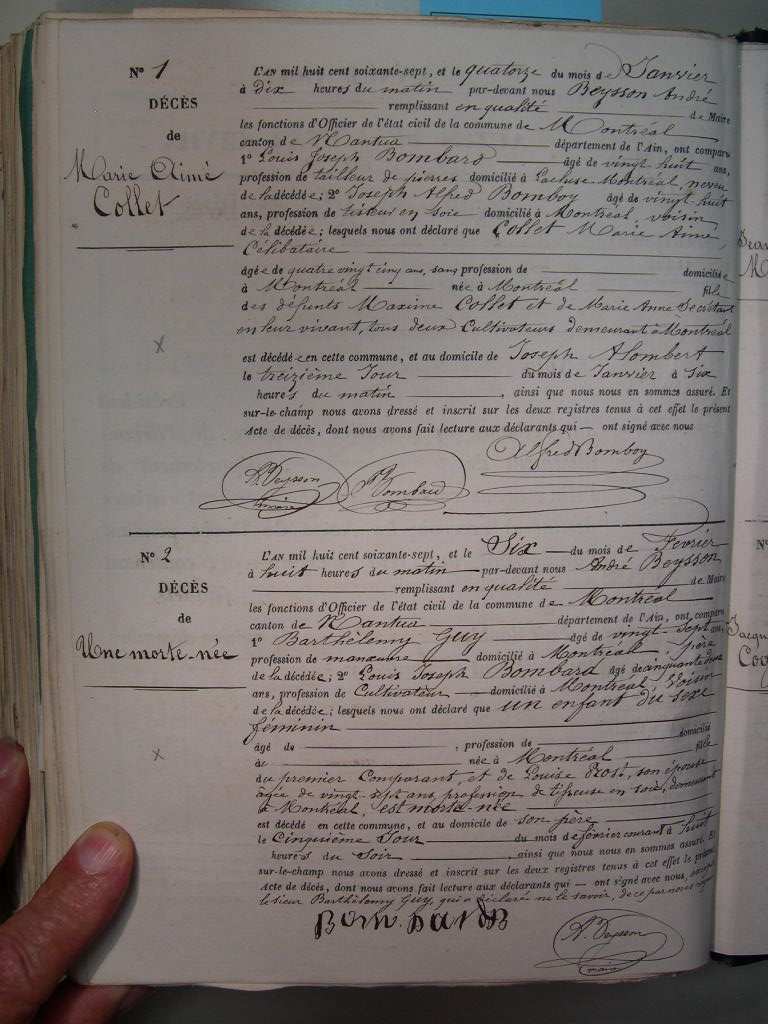 N° 1
DÉCÈS
de
Marie Aimé
Collet
L'AN mil huit cent soixante-sept, et le quatorze du mois de Janvier
à Dix heures du matin par-devant nous Beysson André
remplissant en qualité de Maire
les fonctions d'Officier de l'état civil de la commune de Montréal
canton de Nantua département de l'Ain, ont comparu
1° Louis Joseph Bombard âgé de vingt huit ans,
profession de tailleur de pierres domicilié à Lacluse-Montréal, neveu
de la décédée; 2° Joseph Alfred Bomboy âgé de vingt huit
ans, profession de tisseur en soie domicilié à Montréal voisin
de la décédée; lesquels nous ont déclaré que Collet Marie Aimé,
Célibataire
âgée de quatre vingt cinq ans, sans profession de domiciliée
à Montréal née à Montréal fille
des défunts Maxime Collet et de Marie Anne Secrétant
en leur vivant, tous deux Cultivateurs demeurant à Montréal
est décédée en cette commune, et au domicile de Joseph Alombert
le treizième Jour du mois de Janvier à Six
heures du matin, ainsi que nous nous en sommes assuré. Et
sur-le-champ nous avons dressé et inscrit sur les deux registres tenus à cet effet le présent
Acte de décès, dont nous avons fait lecture aux déclarants qui — ont signé avec nous
Alfred Bomboy
A. Beysson
maire
Bombard
N° 2
DÉCÈS
de
Une morte-née
L'AN mil huit cent soixante-sept, et le Six du mois de Février
à huit heures du matin par-devant nous André Beysson
remplissant en qualité de Maire
les fonctions d'Officier de l'état civil de la commune de Montréal
canton de Nantua département de l'Ain, ont comparu
1° Barthélemy Guy âgé de vingt-sept ans,
profession de manœuvre domicilié à Montréal, père
de la décédée; 2° Louis Joseph Bombard âgé de cinquante deux
ans, profession de Cultivateur domicilié à Montréal, Voisin
de la décédée; lesquels nous ont déclaré que un enfant du sexe
féminin
âgé de , profession de domicilié
à née à Montréal fille
du premier Comparant, et de Louise Prost, son épouse
âgée de vingt-sept ans, profession de tisseuse en soie, demeurant
à Montréal, est morte-née
est décédé en cette commune, et au domicile de son père
le Cinquième Jour du mois de février courant à huit
heures du Soir, ainsi que nous nous en sommes assuré. Et
sur-le-champ nous avons dressé et inscrit sur les deux registres tenus à cet effet le présent
Acte de décès, dont nous avons fait lecture aux déclarants qui — ont signé avec nous,
le sieur Barthélemy Guy, qui a déclaré ne le savoir, de ce par nous
Bombard
A. Beysson
maire